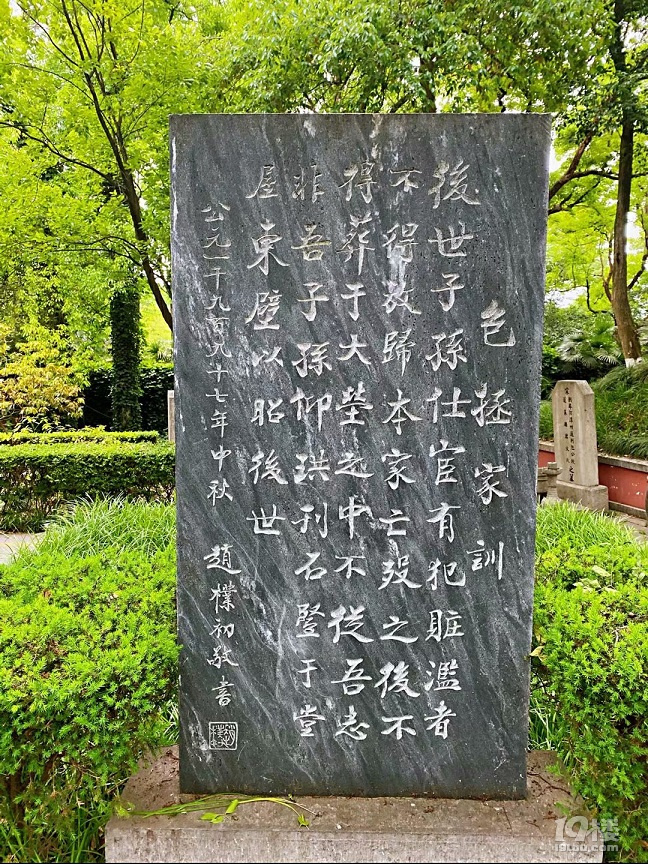 包拯家訓
後世子孫仕宦有犯賍濫者
不得放歸本家亡歿之後不
得葬于大塋之中不從吾志
非吾子孫仰珙刊石豎于堂
屋東壁以昭後世
公元一千九百九十七年中秋 趙樸初敬書
19楼
19lou.com